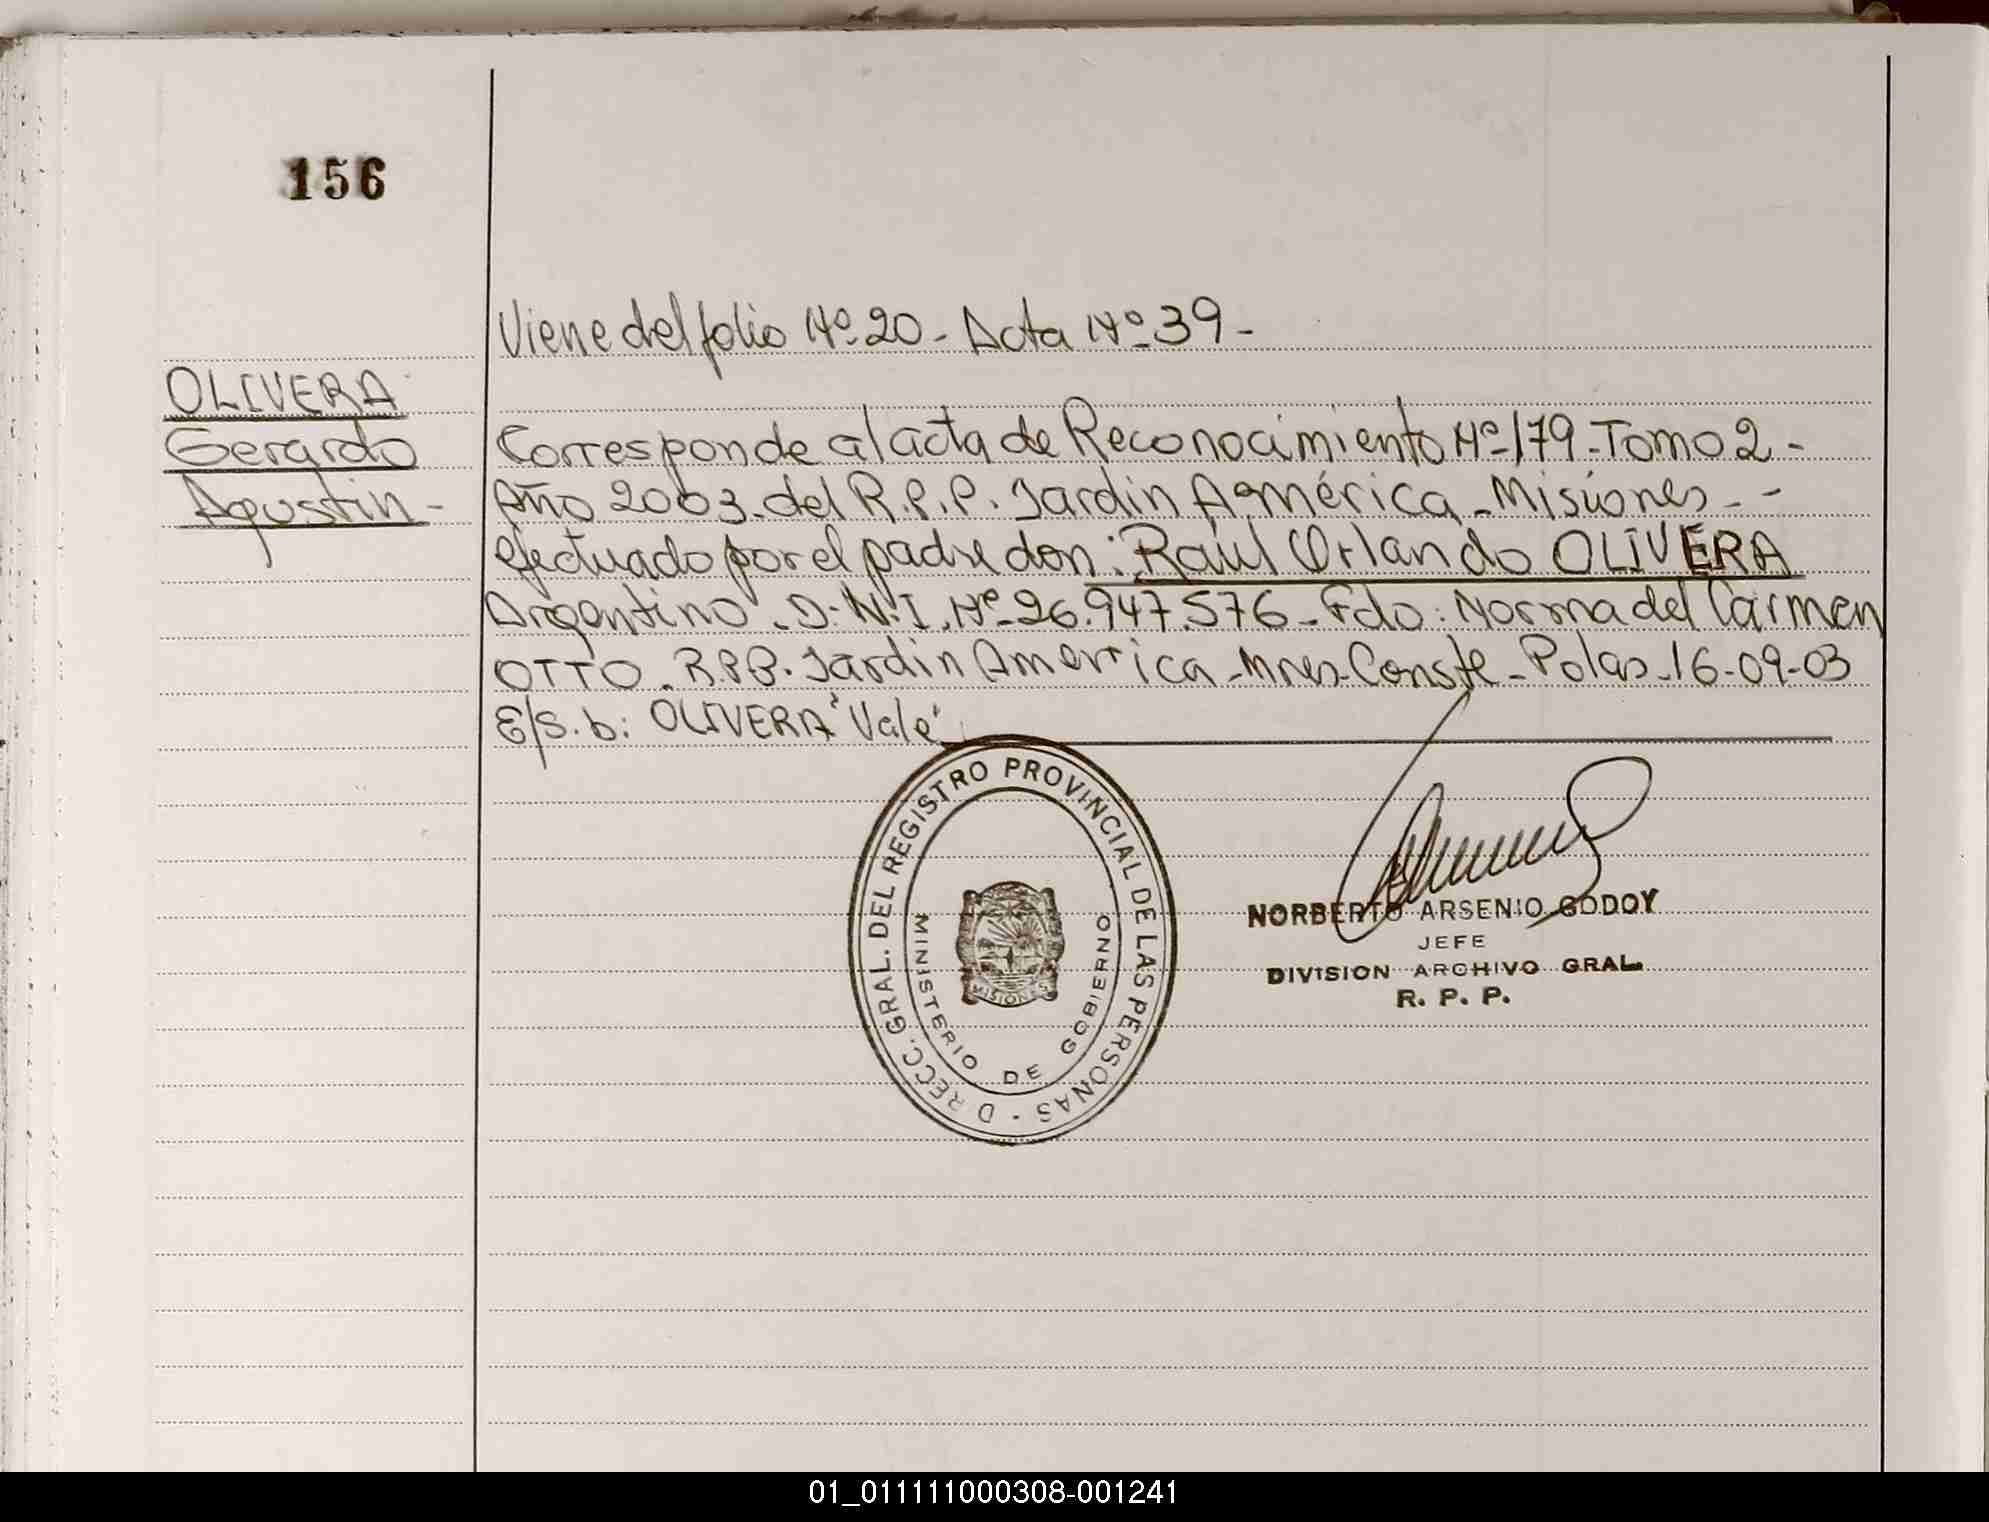 156
Viene del folio Nº 20 - Acta Nº 39 -
OLIVERA
Gerardo
Agustin -
Corresponde al acta de Reconocimiento Nº 179 - Tomo 2 -
Año 2003 - del R.P.P. Jardin América - Misiones - -
efectuado por el padre don: Raúl Orlando OLIVERA
Argentino - D.N.I. Nº 26.947.576 - Fdo: Norma del Carmen
OTTO - R.P.P. Jardin America - Mnes - Conste - Pdas - 16-09-03
E/S.b: OLIVERA "Vale"
DRECC. GRAL. DEL REGISTRO PROVINCIAL DE LAS PERSONAS -
MINISTERIO DE GOBIERNO
MISIONES
NORBERTO ARSENIO GODOY
JEFE
DIVISION ARCHIVO GRAL.
R. P. P.
01_011111000308-001241